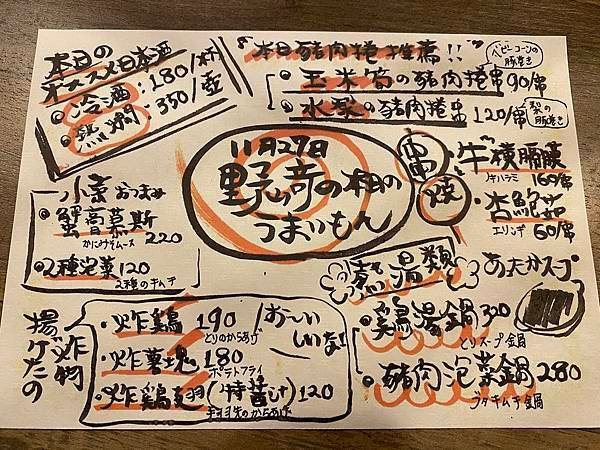 本日の
オススメ日本酒
冷酒:180/杯
熱燗:350/壺
本日豬肉捲推薦!!
ベビーコーンの
豚巻き
玉米筍の豬肉捲串90/串
水梨の豬肉捲串120/串
梨の
豚巻き
11月27日
野奇の本日の
うまいもん
串
燒
牛横膈膜
牛ハラミ 160/串
杏鮑茹
エリンギ 60/串
小菜 おつまみ
蟹膏慕斯
かにみそムース 220
2種泡菜120
2種のキムチ
炸物
揚げたの
炸鷄 190
とりのからあげ
炸薯塊 180
ポテトフライ
炸鷄翅(特醬汁)120
手羽先のからあげ
お〜いしいなぁ!
煮湯類
あたたかスープ
鷄湯鍋 320
とりスープ鍋
豬肉泡菜鍋280
ブタキムチ鍋